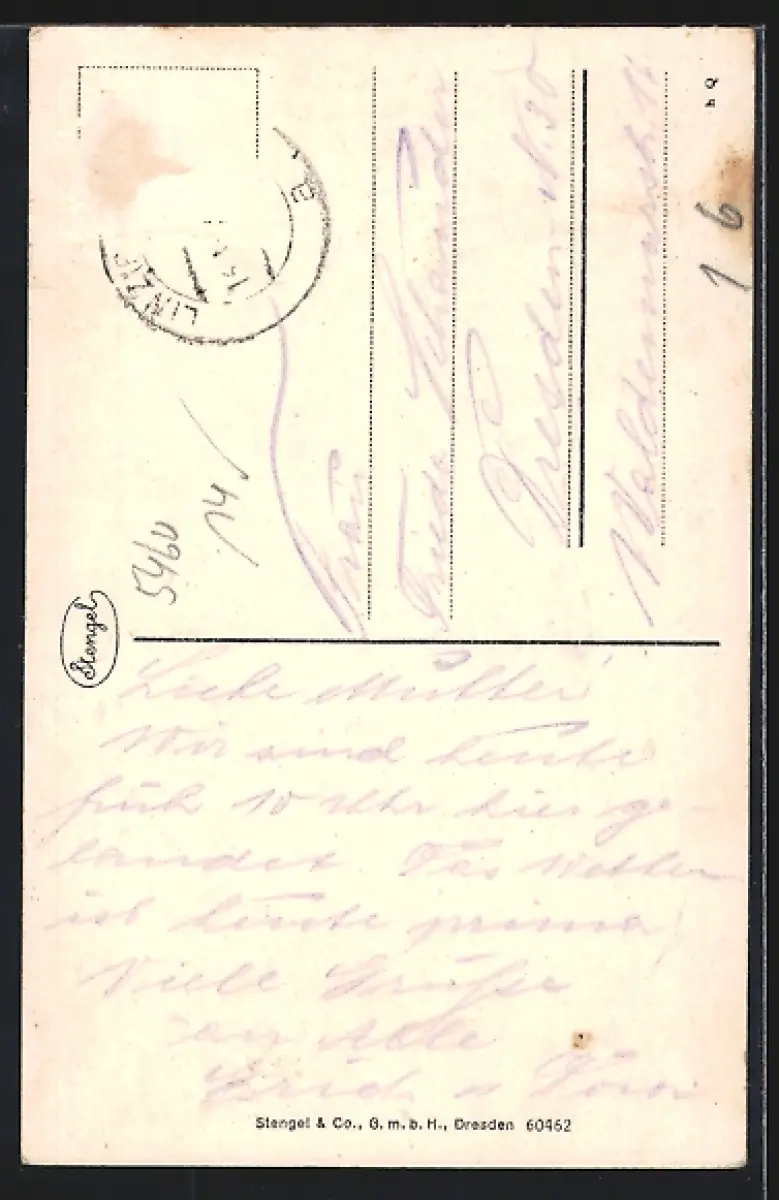 Liebe Mutter!
Wir sind heute
früh 10 Uhr hier ge-
landet. Das Wetter
ist heute prima
Viele Grüße
an Alle
Erich u
Stengel & Co., G. m. b. H., Dresden 60462
Stengel
Frau
Frieda
Dresden N. 30
5460
14
16